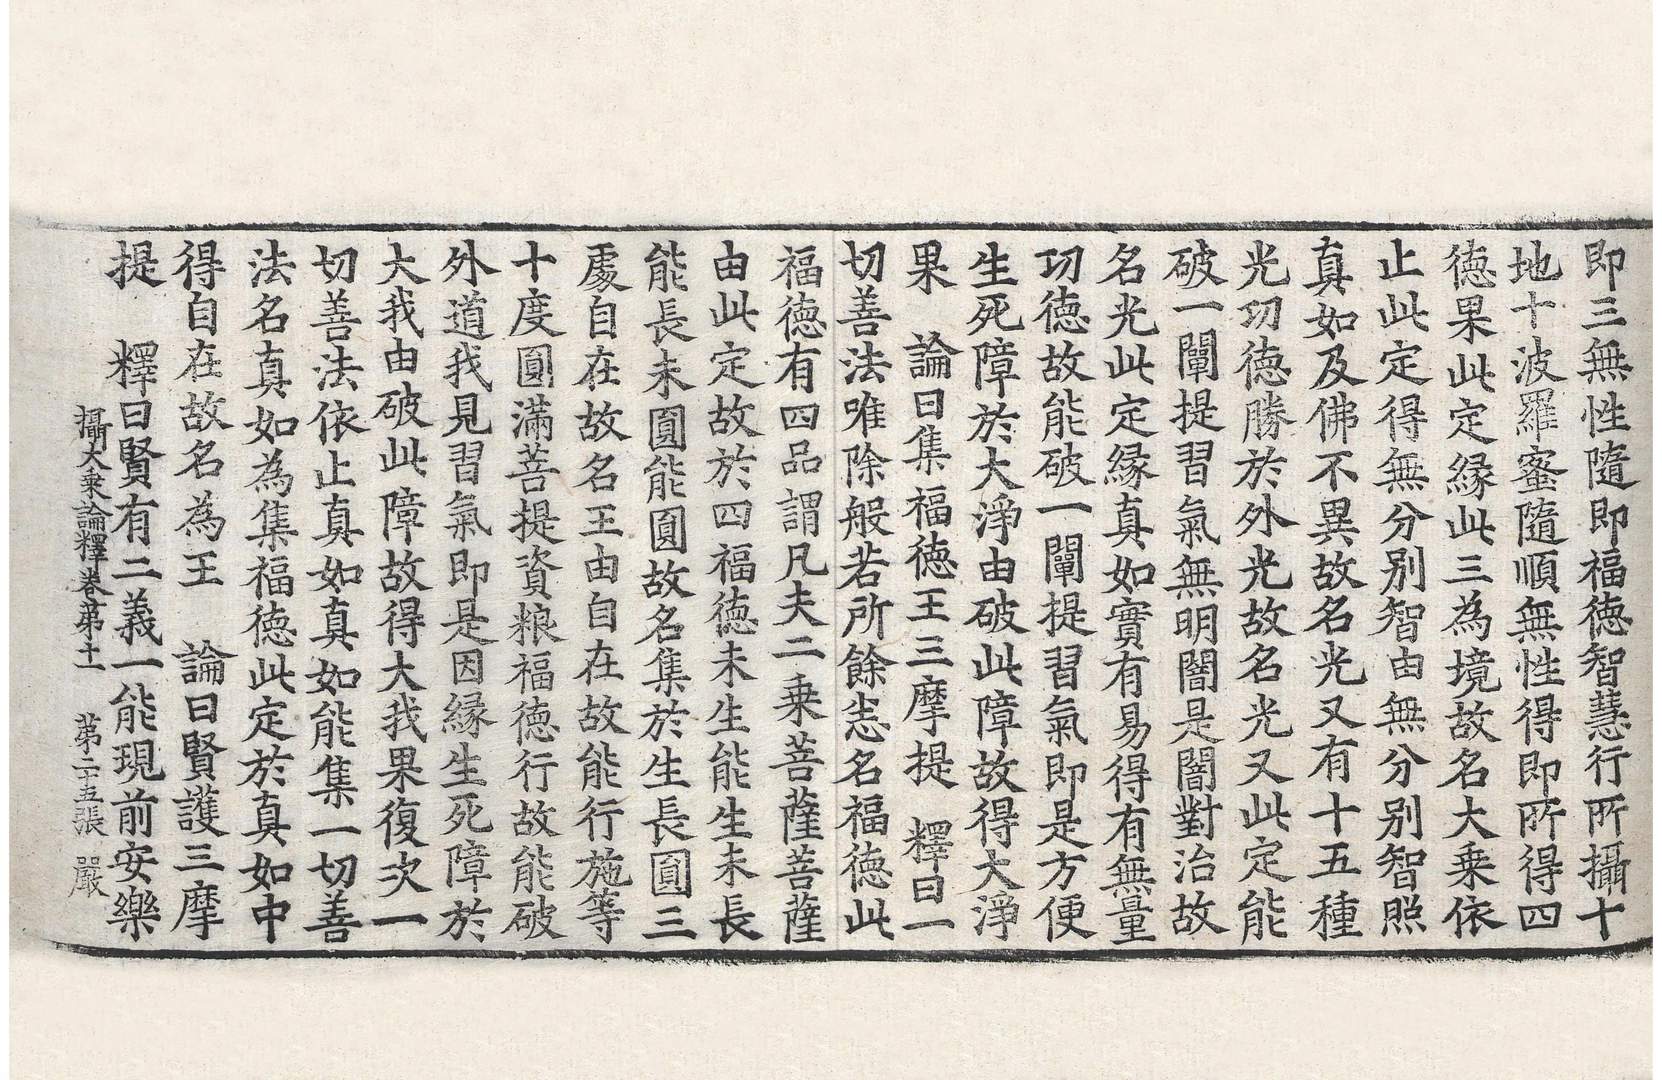 即三無性隨即福德智慧行所攝十
地十波羅蜜隨順無性得即所得四
德果此定緣此三為境故名大乘依
止此定得無分別智由無分別智照
真如及佛不異故名光又有十五種
光㓛德勝於外光故名光又此定能
破一闡提習氣無明闇是闇對治故
名光此定緣真如實有易得有無量
㓛德故能破一闡提習氣即是方便
生死障於大淨由破此障故得大淨
果　論曰集福德王三摩提　釋曰一
切善法唯除般若所餘悉名福德此
福德有四品謂凡夫二乘菩薩菩薩
由此定故於四福德未生能生未長
能長未圓能圓故名集於生長圓三
處自在故名王由自在故能行施等
十度圓滿菩提資粮福德行故能破
外道我見習氣即是因緣生死障於
大我由破此障故得大我果復次一
切善法依止真如真如能集一切善
法名真如為集福德此定於真如中
得自在故名為王　論曰賢護三摩
提　釋曰賢有二義一能現前安樂
攝大乘論釋卷第十一　第二十五張　嚴